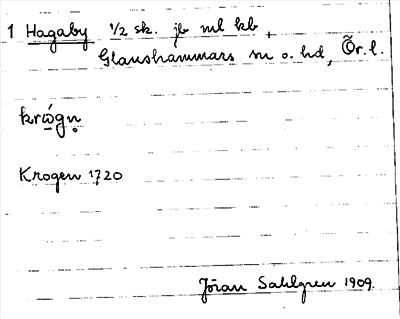 1 Hagaby 1/2 sk. jb ml kb,
Glanshammars sn o. hd, Ör. l.
krώgṇ
Krogen 1720
Jöran Sahlgren 1909.